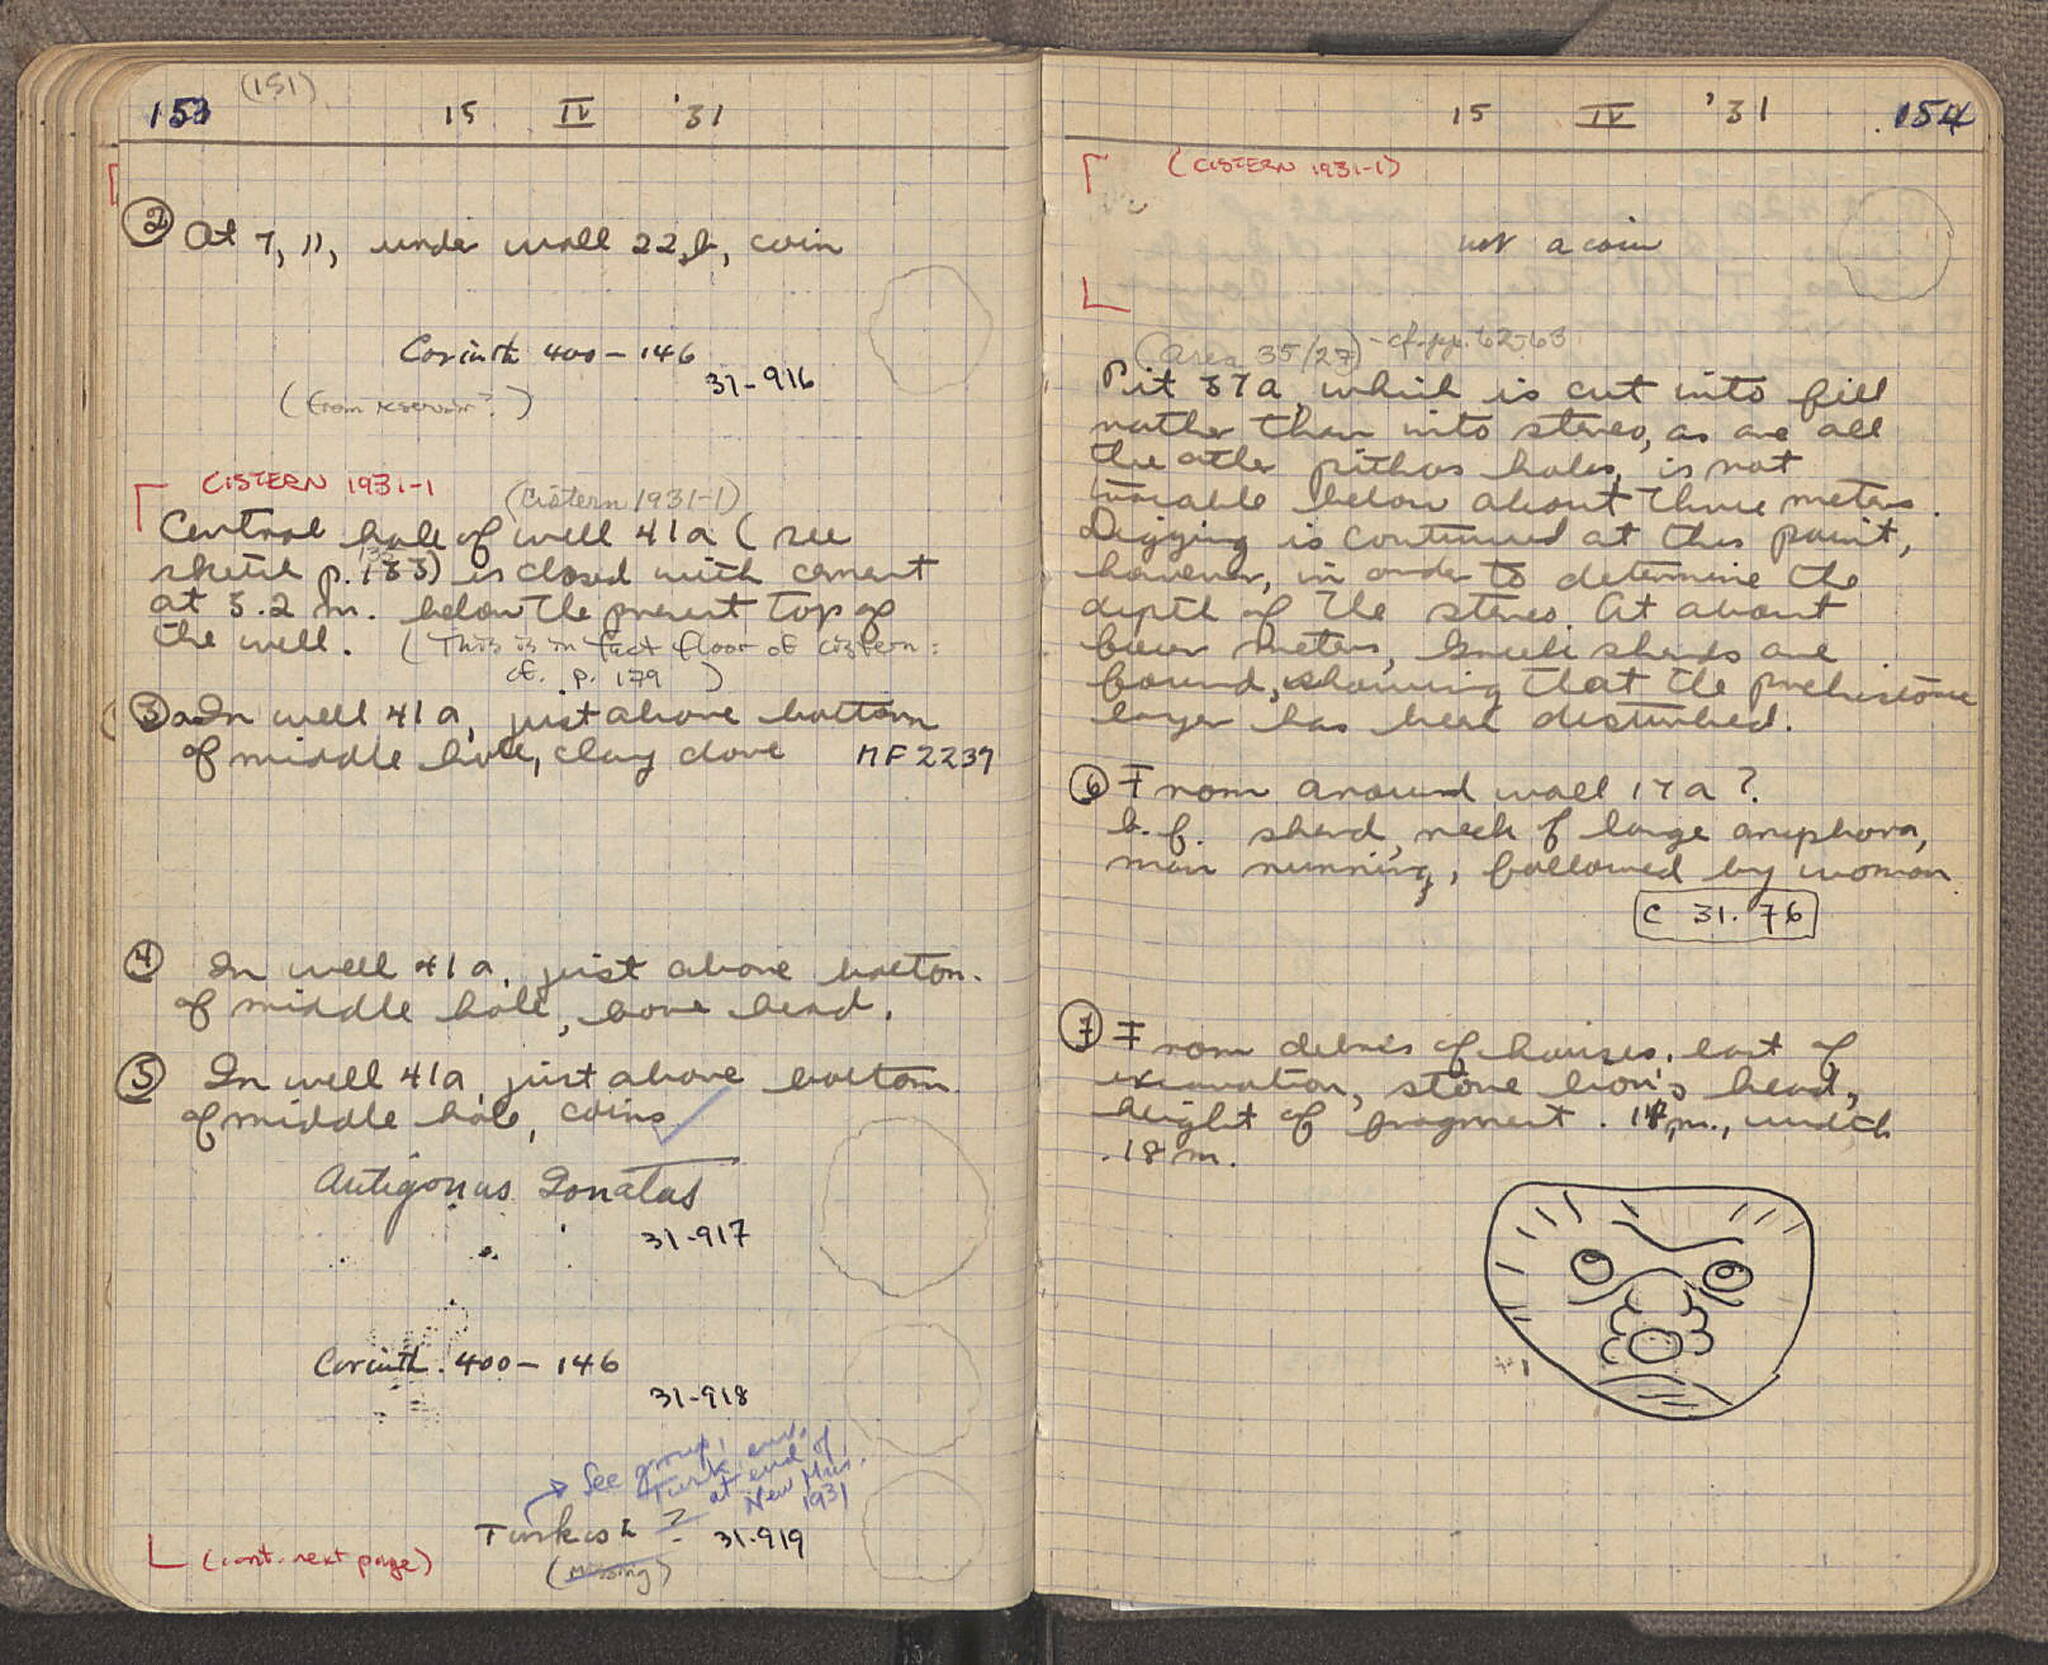 153 (151) 15 IV '31
② At 7, 11, under wall 22b, coin
Corinth 400 - 146
31-916
(from reservoir?)
CISTERN 1931-1 (Cistern 1931-1)
Central hole of well 41a (see
sketch p. 133) is closed with cement
at 5.2 m. below the present top of
the well. (This is in fact floor of cistern:
cf. p. 179)
③ In well 41a, just above bottom
of middle hole, clay dove MF 2239
④ In well 41a, just above bottom
of middle hole, bone bead.
⑤ In well 41a, just above bottom
of middle hole, coins
Antigonus Gonatas
31-917
Corinth 400 - 146
31-918
→ See group, env.
Turk. at end of
New Mus.
1931
Turkish ? 31-919
(missing)
(cont. next page)
15 IV '31 154
(CISTERN 1931-1)
not a coin
(Area 35/27) - cf. pp. 62-63
Pit 37a, which is cut into fill
rather than into stereo, as are all
the other pithos holes, is not
traceable below about three meters.
Digging is continued at this point,
however, in order to determine the
depth of the stereo. At about
four meters, Greek sherds are
found, showing that the prehistoric
layer has been disturbed.
⑥ From around wall 17a?
b.f. sherd, neck of large amphora,
man running, followed by woman
C 31. 76
⑦ From debris of houses, east of
excavation, stone lion's head,
height of fragment . m., width
.18 m.